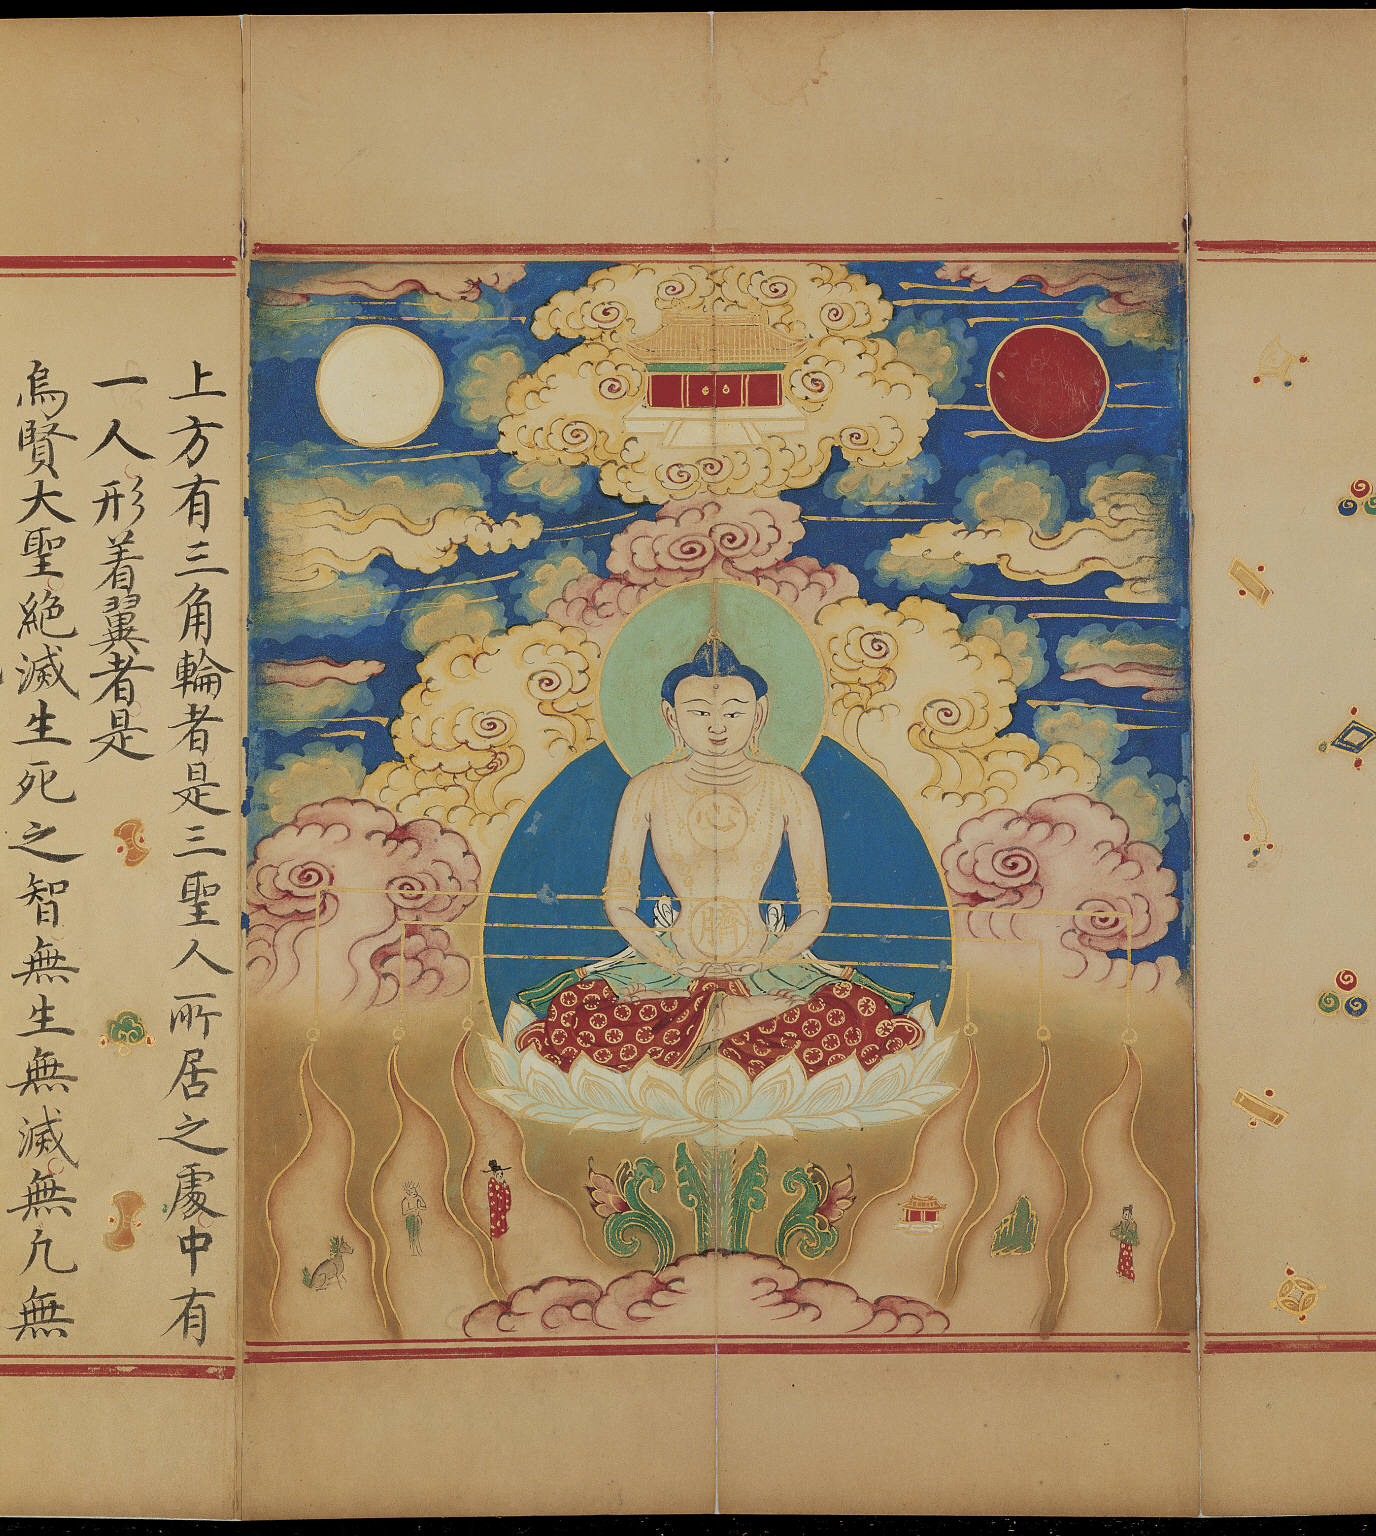 上方有三角輪者是三聖人所居之處中有
一人形着翼者是
烏賢大聖絕滅生死之智無生無滅無亢無
心
臍